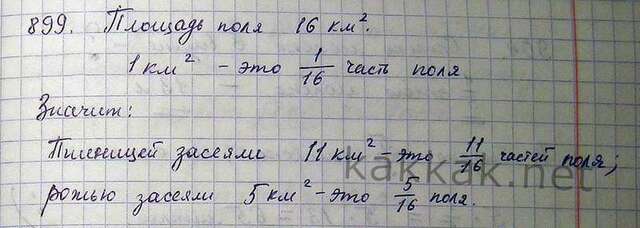 899. Площадь поля 16 км².
1 км² - это 1/16 часть поля
Значит:
Пшеницей засеяли 11 км² - это 11/16 частей поля;
рожью засеяли 5 км² - это 5/16 поля.
kakkak.net